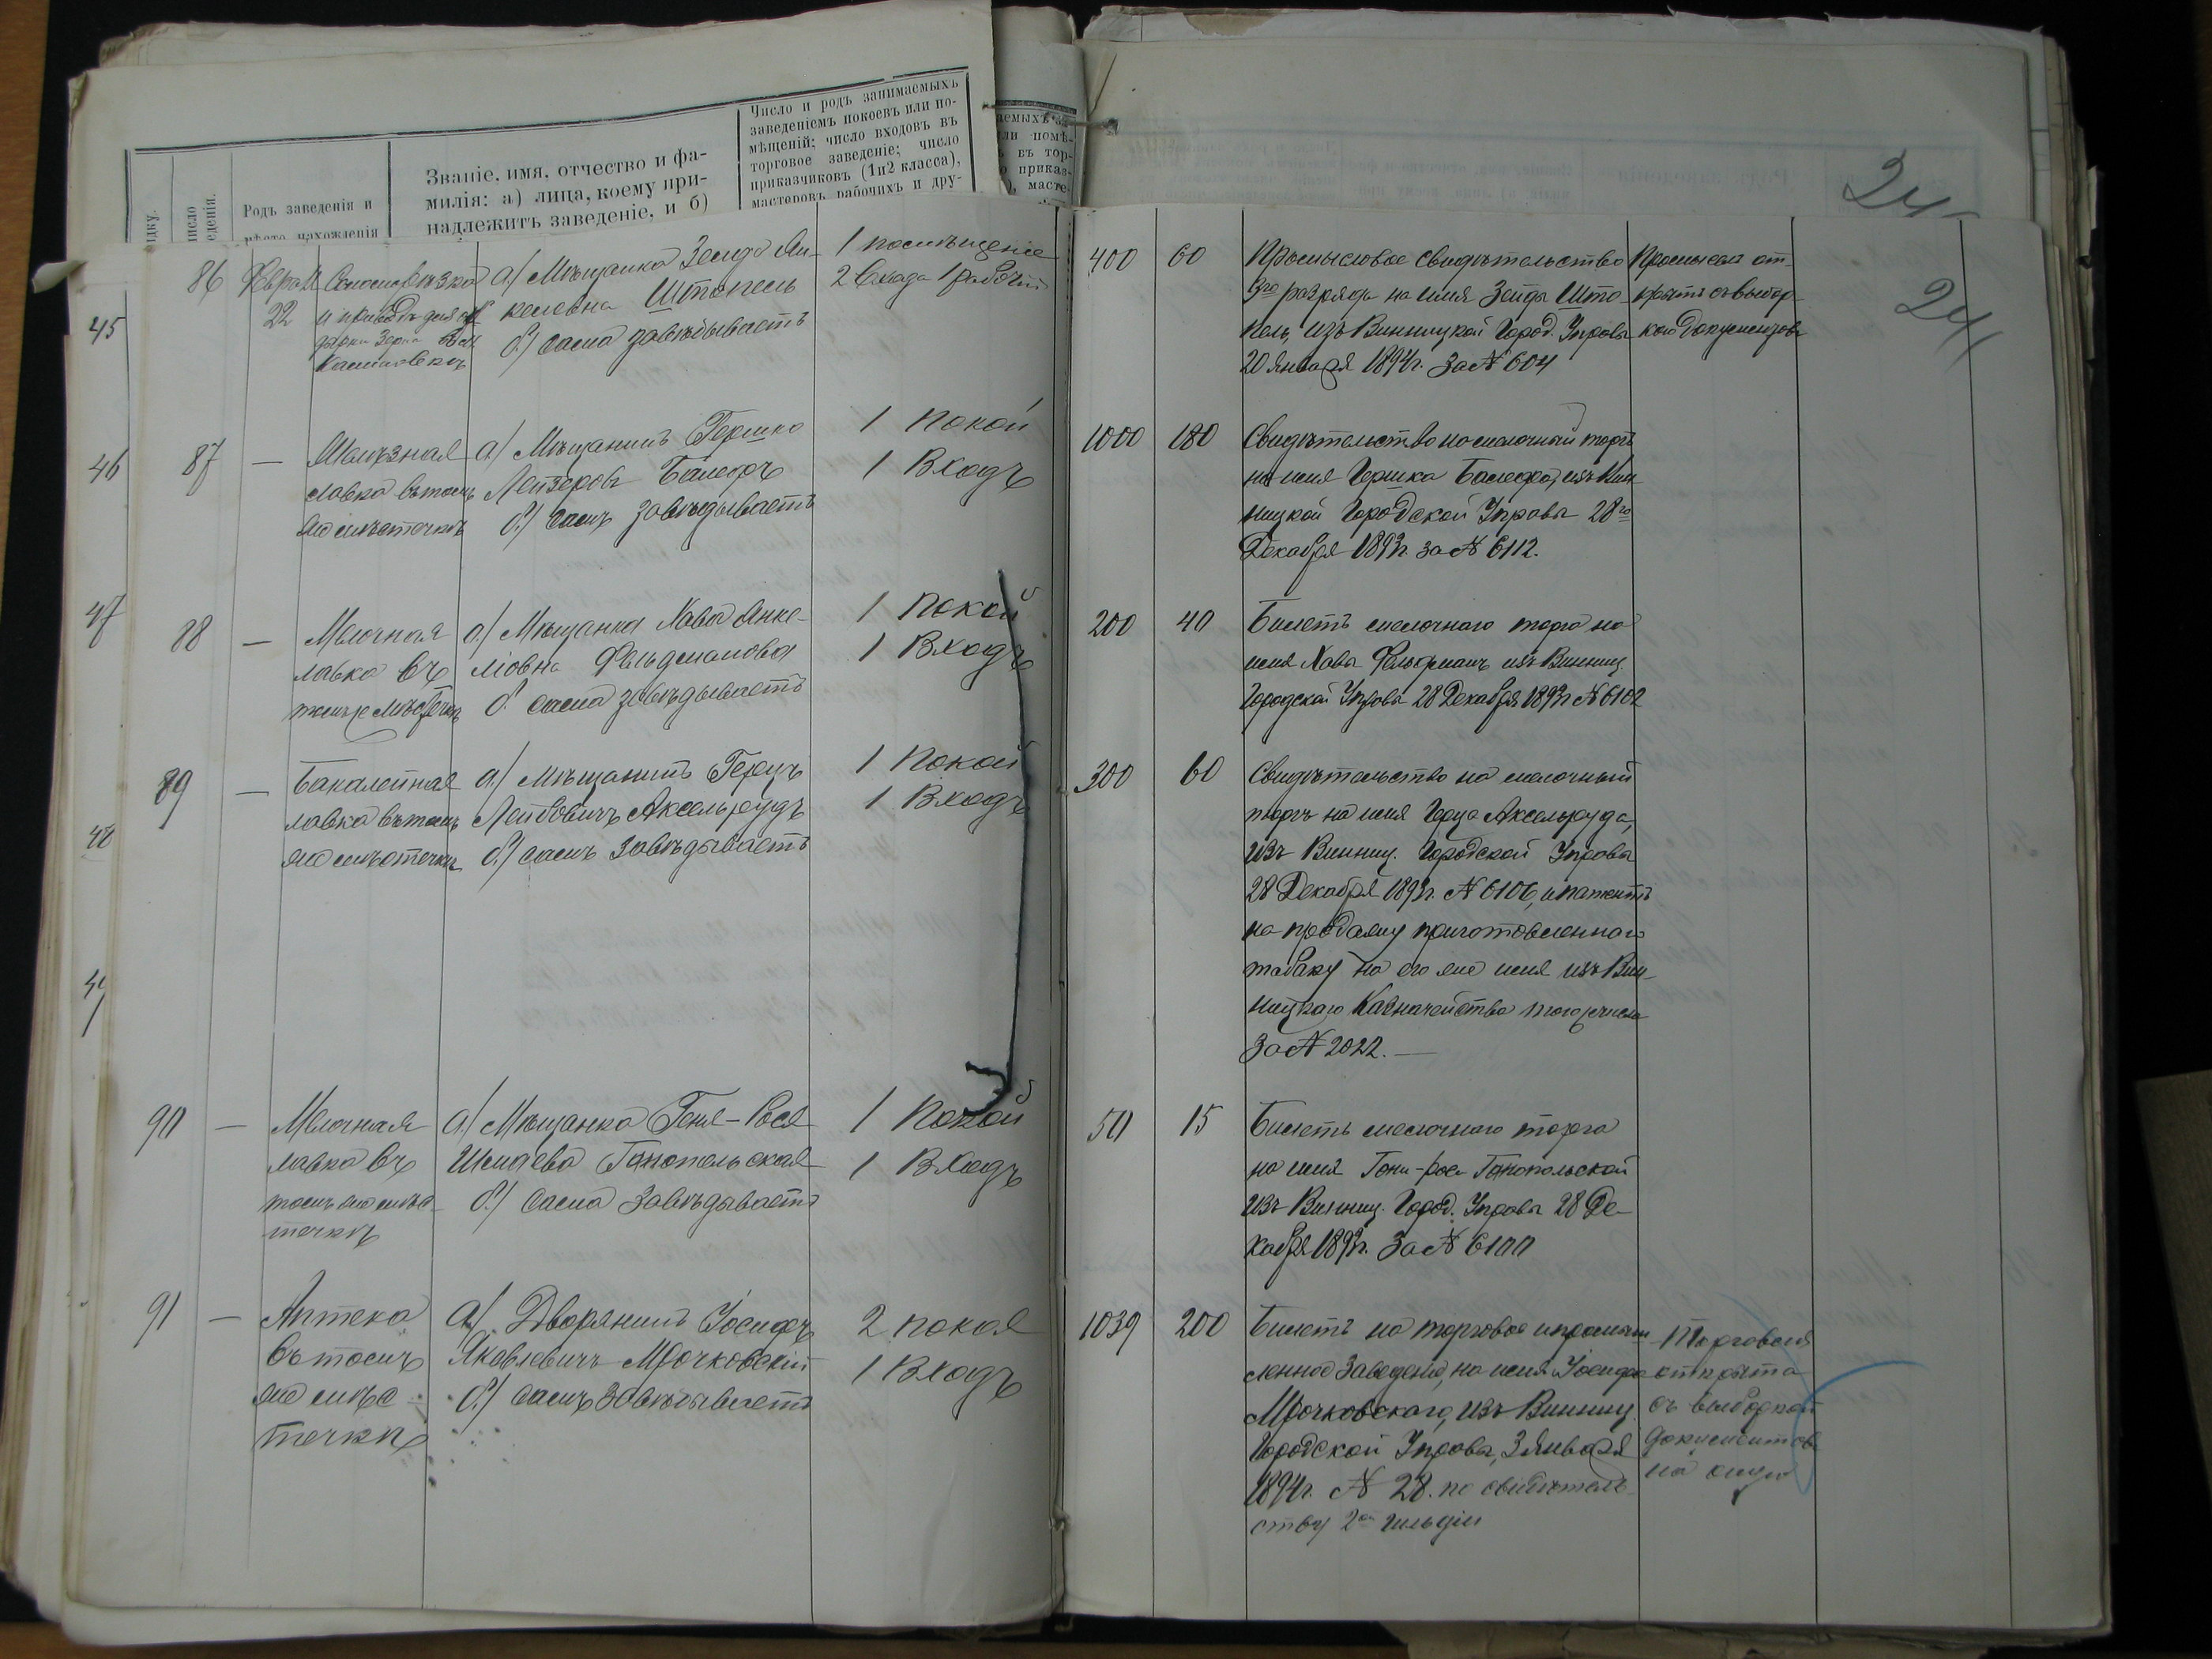 Родъ заведенія и
мѣсто нахожденія
Званіе, имя, отчество и фа-
милія: а) лица, коему при-
надлежитъ заведеніе, и б)
Число и родъ занимаемыхъ
заведеніемъ покоевъ или по-
мѣщеній; число входовъ въ
торговое заведеніе; число
приказчиковъ (1и2 класса),
мастеровъ, рабочихъ и дру-
45
46
47
48
49
86
22
а) Мѣщанка Зейда Ян-
келевна Штопель
б.) сама завѣдываетъ
1 помѣщеніе
2 Склада 1 рабочій
400 60
Промысловое свидѣтельство
3го разряда на имя Зейды Што-
пель, изъ Винницкой Город. Управы
20 Января 1894г. За № 604
Промыселъ от-
крытъ съ выбор-
кою документовъ
87 —
лавка въ томъ
же мѣстечкѣ
а) Мѣщанинъ Гершко
Лейзеровъ
б.) самъ завѣдываетъ
1 покой
1 Входъ
1000 180
Свидѣтельство на мелочный торгъ
на имя Гершка изъ Вин-
ницкой Городской Управы 28го
Декабря 1893г. за № 6112.
88 —
Мелочная
лавка въ
томъ же мѣстечкѣ
а.) Мѣщанка Хава Янке-
ліовна Фельдманова
б. сама завѣдываетъ
1 покой
1 Входъ
200 40
Билетъ мелочнаго торга на
имя Хавы Фельдманъ изъ Винниц.
Городской Управы 28 Декабря 1893г № 6102
89 —
Бакалейная
лавка въ томъ
же мѣстечкѣ
а.) Мѣщанинъ Герцъ
Лейбовичъ Аксельрудъ
б.) самъ завѣдываетъ
1 покой
1 Входъ
300 60
Свидѣтельство на мелочный
торгъ на имя Герца Аксельруда,
изъ Винниц. Городской Управы
28 Декабря 1893г. № 6106, и патентъ
на продажу приготовленнаго
табаку на его же имя изъ Вин-
ницкаго Казначейства того же числа
За № 2022. —
90 —
Мелочная
лавка въ
томъ же мѣс-
течкѣ
а.) Мѣщанка Геня-Рося
Шмаева Ганопольская
б.) сама завѣдываетъ
1 покой
1 Входъ
50 15
Билетъ мелочнаго торга
на имя Гени-роси Ганопольской
изъ Винниц. Город. Управы 28 Де-
кабря 1893г. За № 6100
91 —
Аптека
въ томъ
же мѣс-
течкѣ
а.) Дворянинъ Іосифъ
Яковлевичъ Мрочковскій
б.) самъ завѣдываетъ
2 покоя
1 Входъ
1039 200
Билетъ на торговое и промыш-
ленное заведеніе, на имя Іосифа
Мрочковскаго, изъ Винниц.
Городской Управы, 3 Января
1894г. № 28. по свидѣтель-
ству 2ой гильдіи
Торговля
открыта
съ выборкой
документовъ
24
24